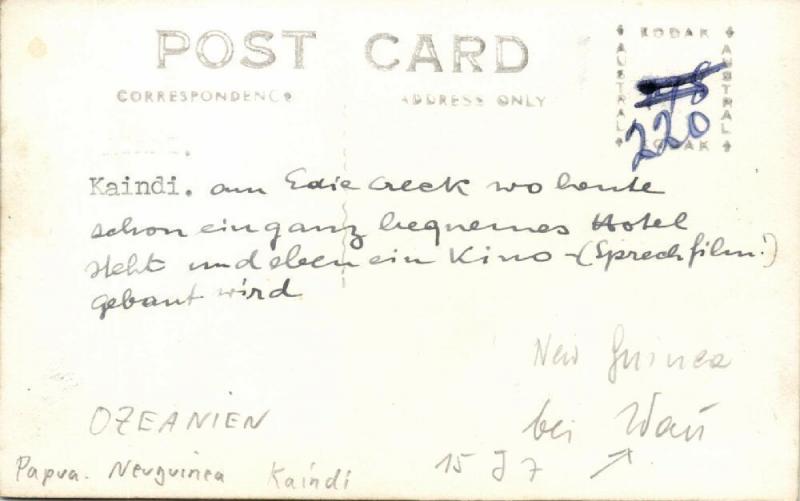 POST CARD
CORRESPONDENCE ADDRESS ONLY
KODAK
AUSTRAL AUSTRAL
KODAK
220
Kaindi. am Edie Creek wo heute
schon ein ganz bequemes Hotel
steht und eben ein Kino-(Sprechfilm!)
gebaut wird
New Guinea
OZEANIEN
bei Wau
Papua. Neuguinea Kaindi 15 J 7